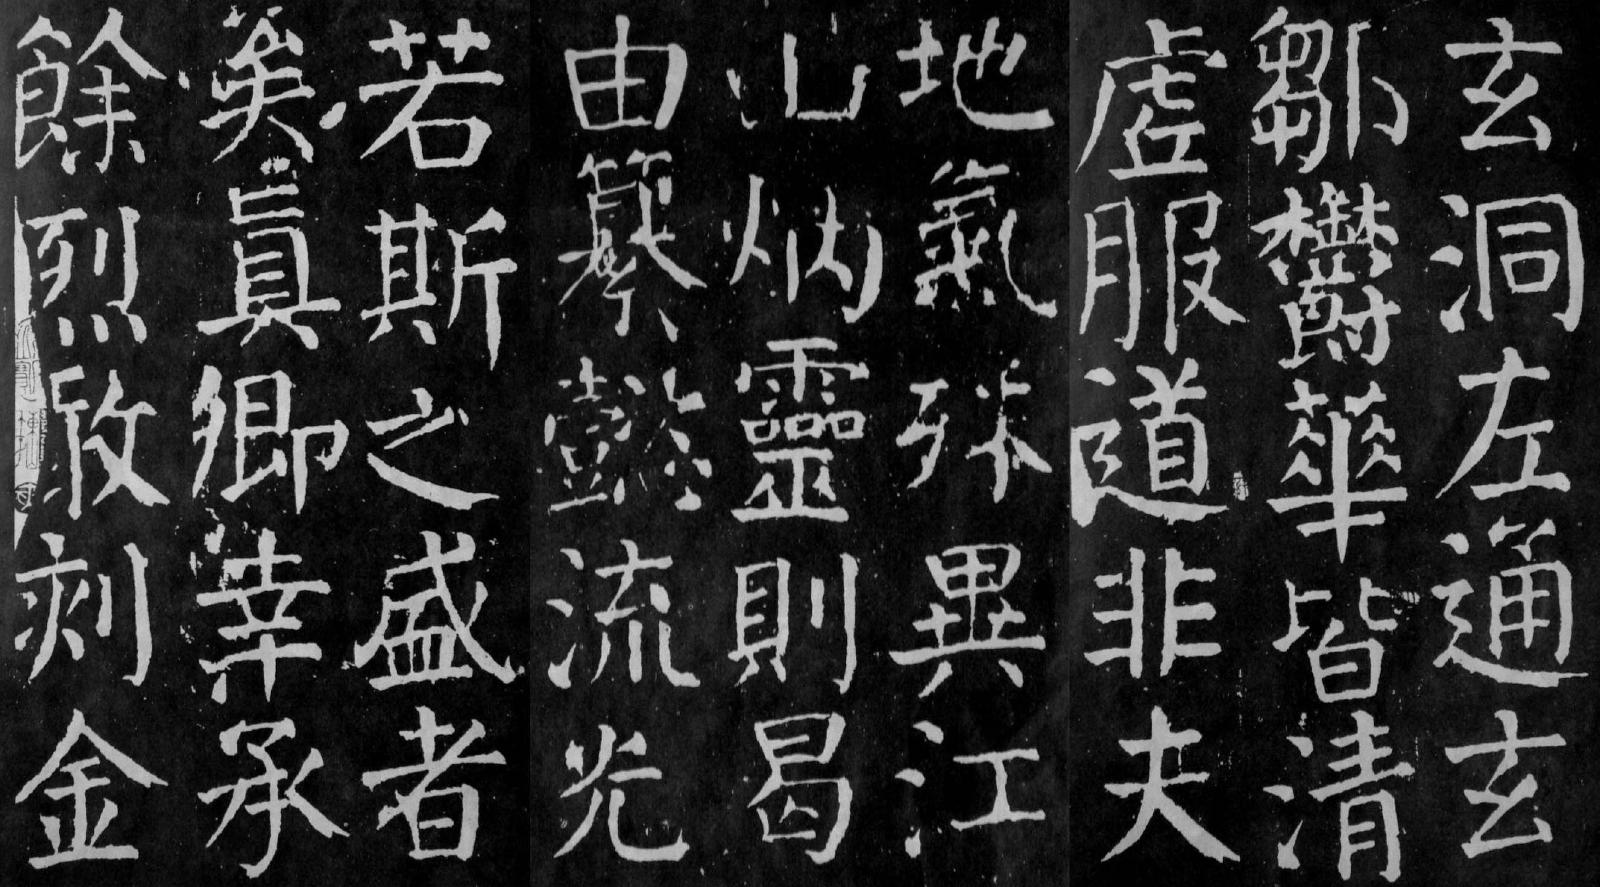 玄洞左通玄
鄒欝華皆清
虛服道非夫
地氣殊異江
山炳靈則曷
由纂懿流光
若斯之盛者
矣真卿幸承
餘烈敢刻金